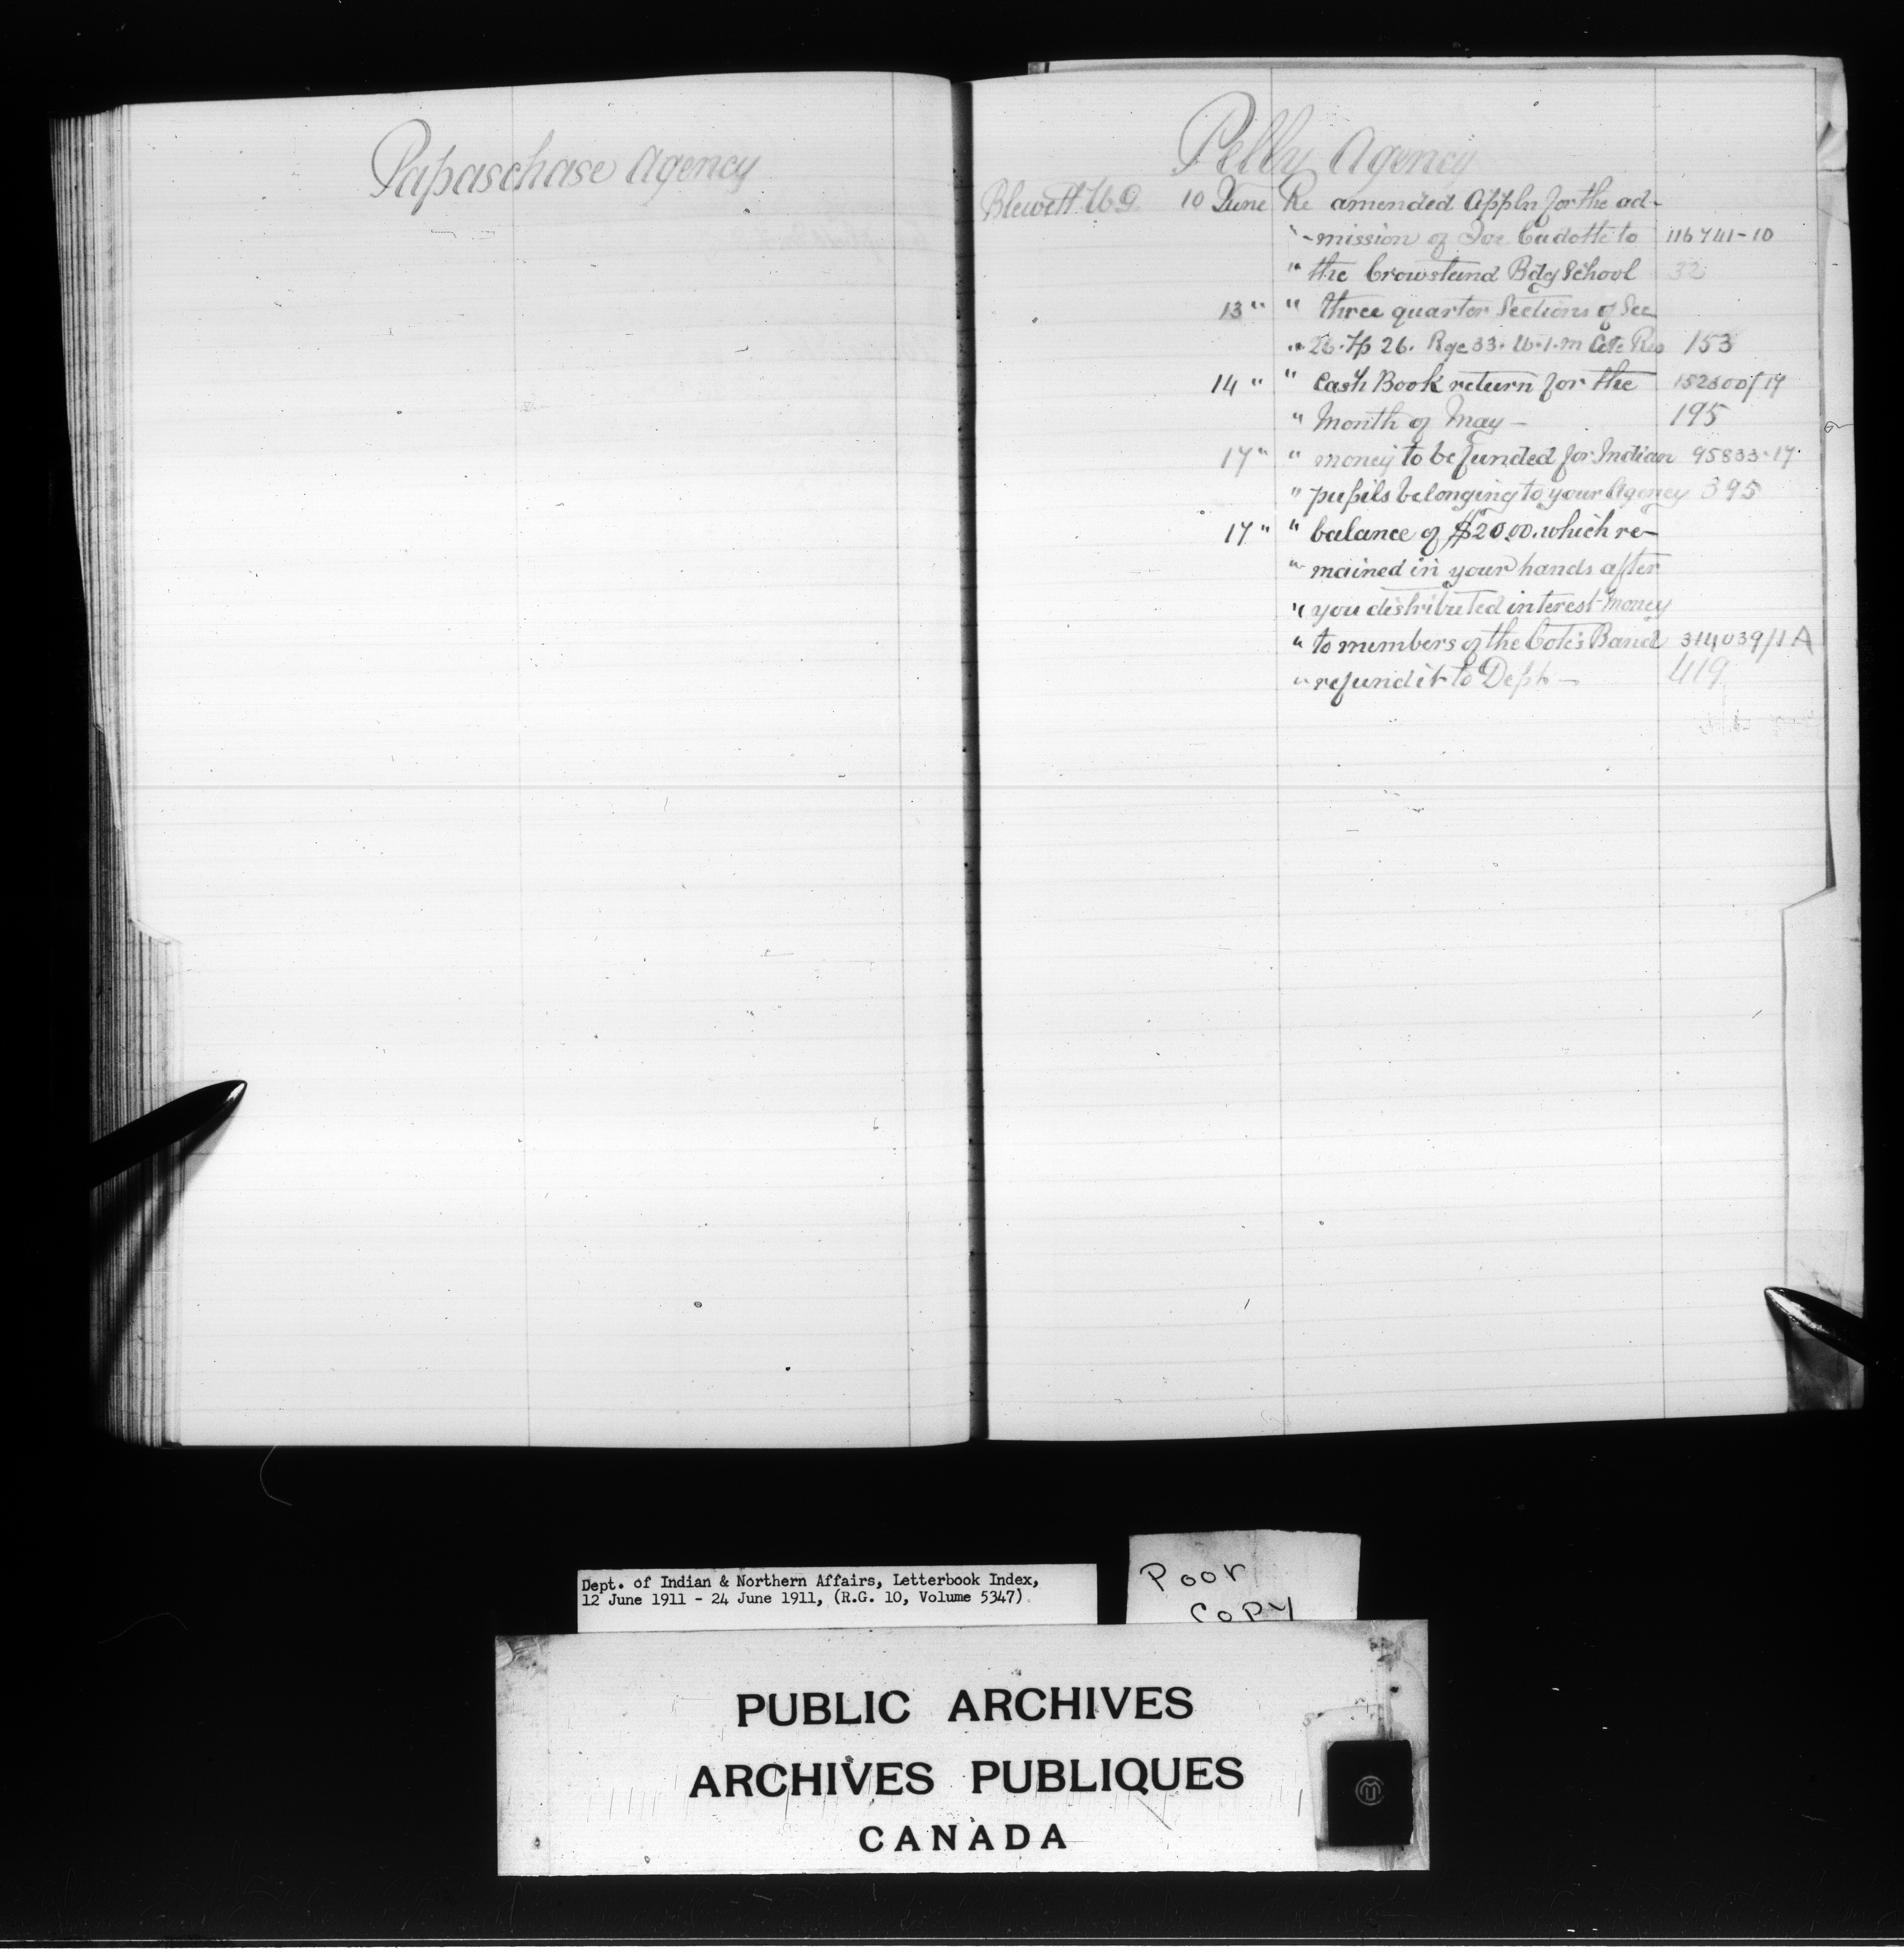 Papaschase Agency
Pelly Agency
Blewett W G. 10 June Re amended Appln for the ad-
"-mission of Joe Cadotte to 116741-10
" the Crowstand Bdg School 32
13 " " three quarter Sections of Sec
" 26. Tp 26. Rge 33. W.1.M Cote Res 153
14 " " Cash Book return for the
" Month of May - 195
17 " " money to be funded for Indian 95833-17
" pupils belonging to your Agency 395
17 " " balance of $20.00. which re-
" mained in your hands after
" you distributed interest money
" to members of the Cote's Band 314039/1A
" refund it to Dept - 419
Dept. of Indian & Northern Affairs, Letterbook Index,
12 June 1911 - 24 June 1911, (R.G. 10, Volume 5347)
Poor
Copy
PUBLIC ARCHIVES
ARCHIVES PUBLIQUES
CANADA